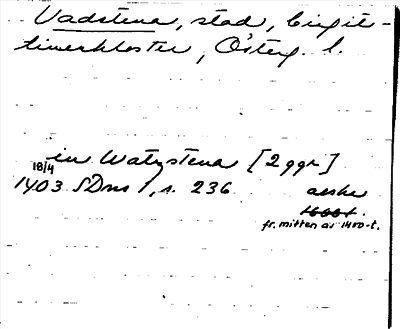 Vadstena, stad, birgit-
tinerkloster, Österg. l.
in Watzstena [2 ggr]
18/4
1403 SDns 1, s. 236. avskr
fr. mitten av 1400-t.